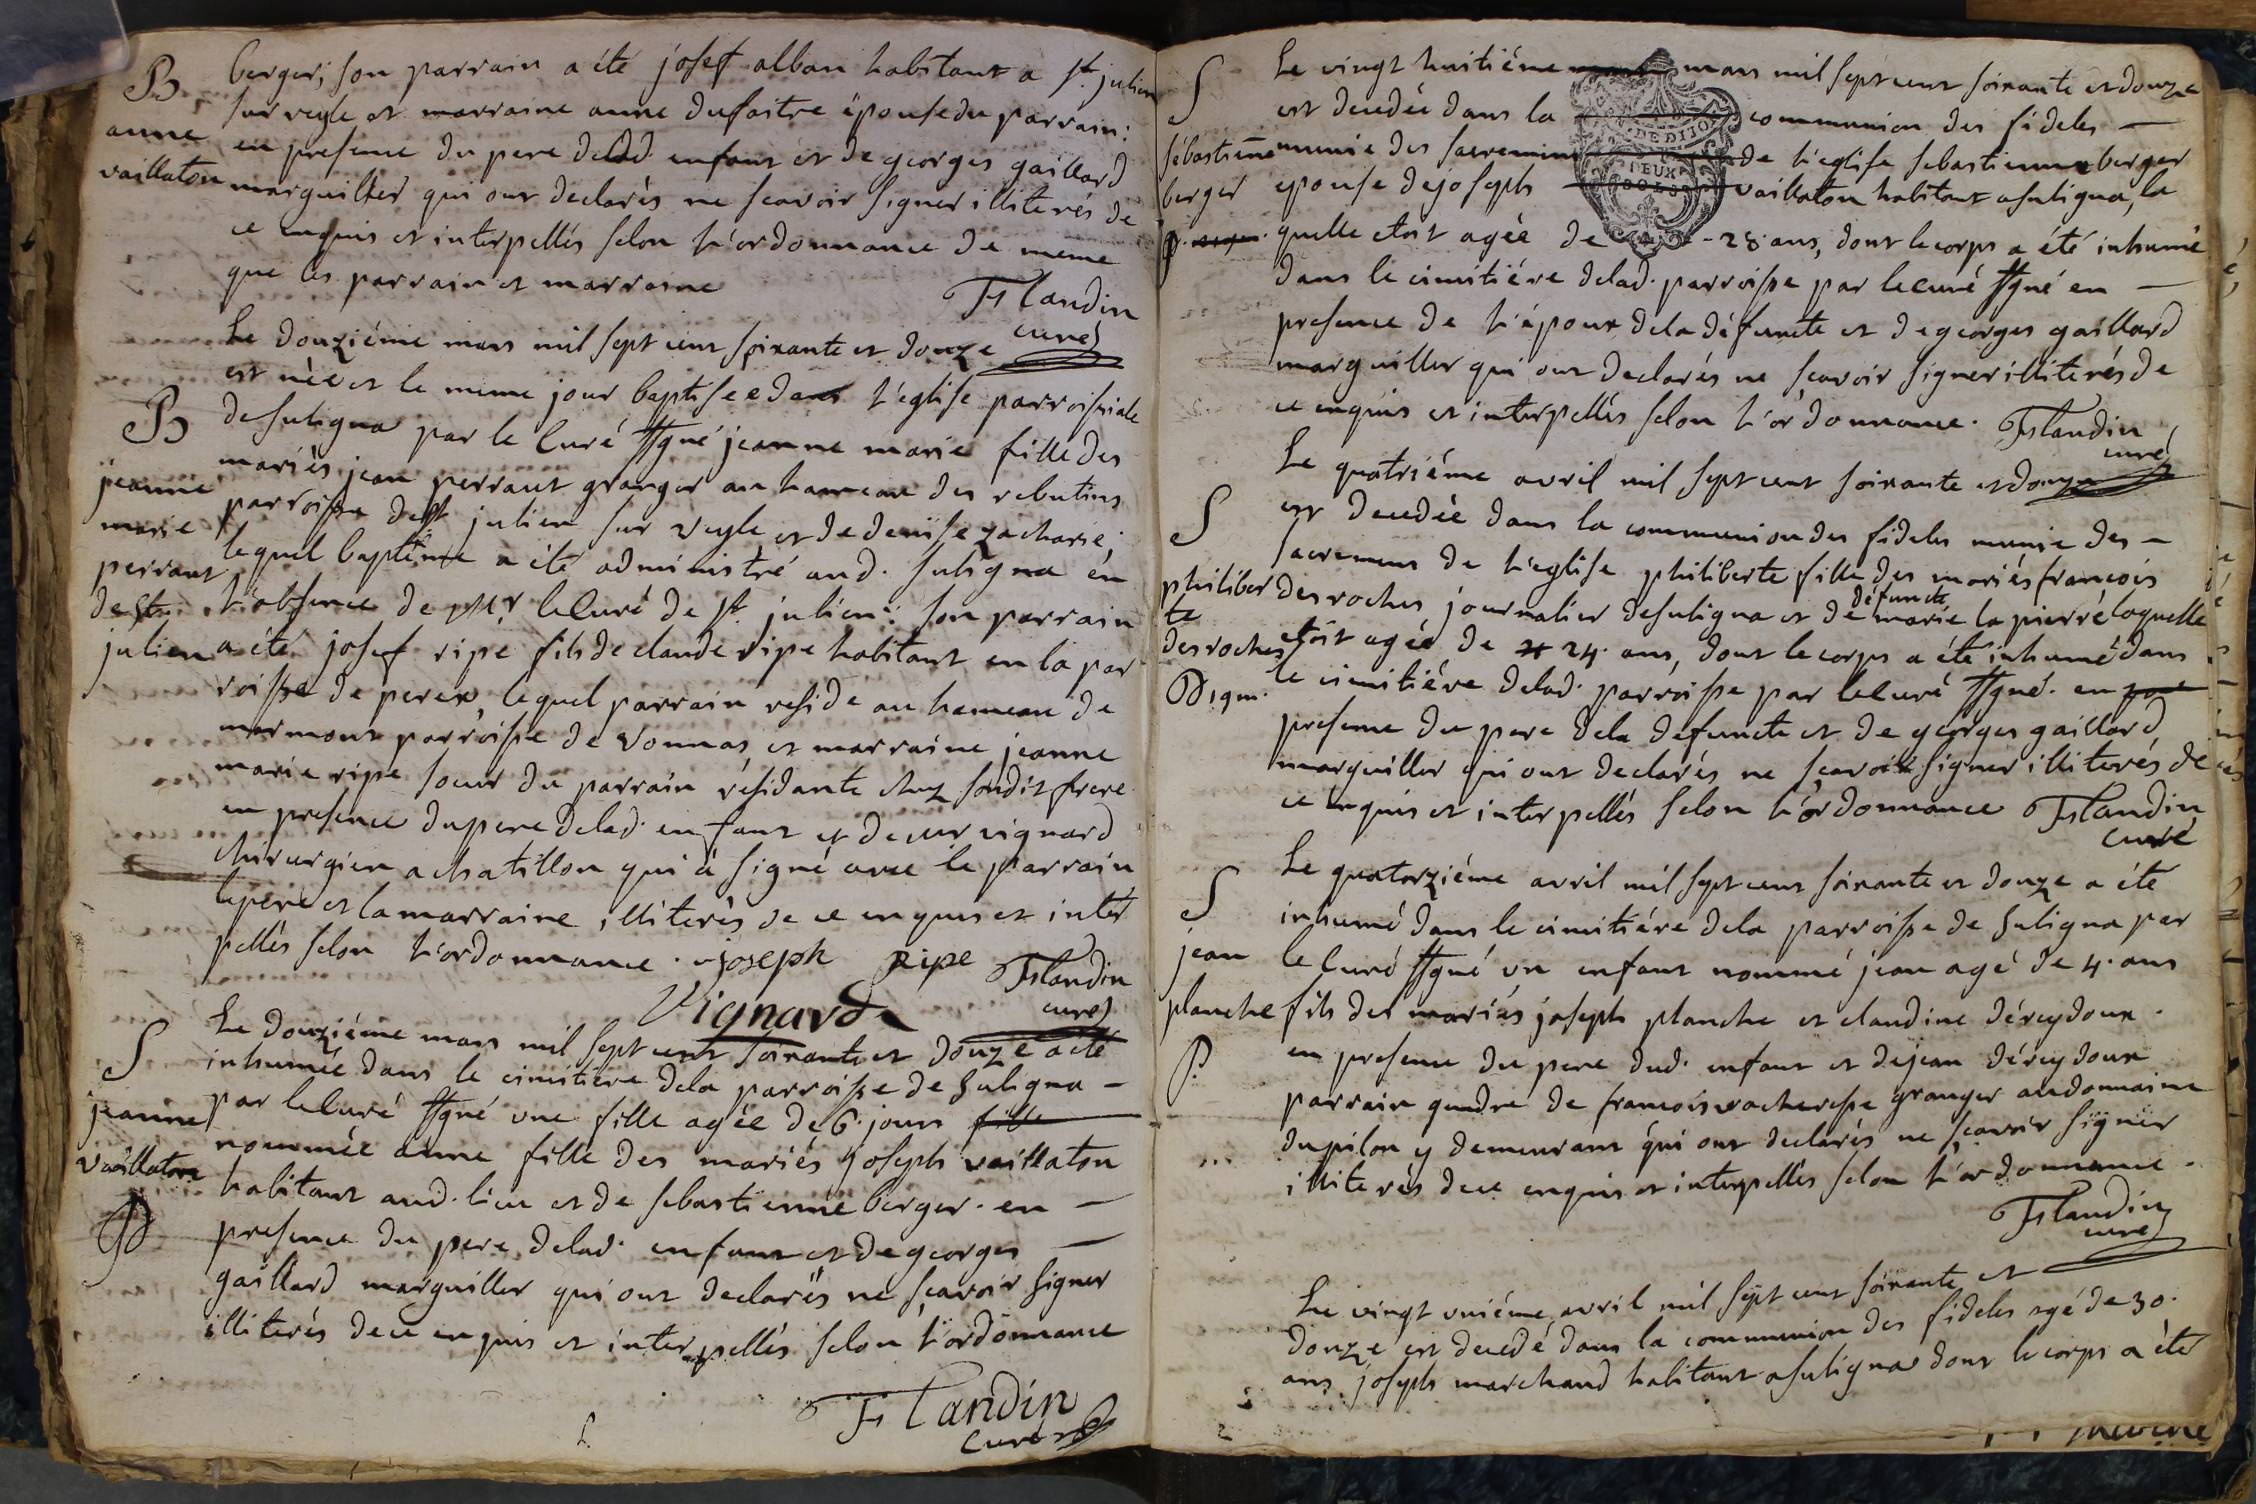 B
anne
vaillaton
berger; son parrain a été josef alban habitant a st. julien
sur veyle et marraine anne dufaitre épouse du parrain:
en presence du pere delad. enfant et de georges gaillard
marguiller qui ont declarés ne scavoir signer illiterés de
ce enquis et interpellés selon l'ordonnance de meme
que les parrain et marraine
Flandin
curé
B
jeanne
marie
perraut
de st.
julien
Le douziéme mars mil sept cent soixante et douze
est née et le meme jour baptisee dans l'eglise parroissiale
de suligna par le Curé ssgné jeanne marie fille des
mariés jean perraut granger au hameau des rebutins
parroisse de st julien sur veyle et de denise zacharie;
lequel baptême a été administré aud. suligna en
l'absence de Mr. le Curé de st. julien: son parrain
a été josef ripe fils de claude ripe habitant en la par
roisse de perex, lequel parrain reside au hameau de
marmont parroisse de vonnas, et marraine jeanne
marie ripe soeur du parrain résidante chez sondit frere
en presence du pere delad. enfant et de vignard
chirurgien a chatillon qui à signé avec le parrain
le pére et la marraine illiterés de ce enquis et inter
pellés selon l'ordonnance. joseph ripe
Flandin
curé
Vignard
S
jeanne
vaillaton
P
Le douziéme mars mil sept cent soixante et douze a été
inhumée dans le cimitiére dela parroisse de suligna -
par le Curé ssgné une fille agée de 6. jours fille
nommée anne fille des mariés joseph vaillaton
habitant aud. lieu et de sebastienne berger. en -
presence du pere delad. enfant et de georges -
gaillard marguiller qui ont declarés ne scavoir signer
illiterés de ce enquis et interpellés selon l'ordonnance
Flandin
curé
S
sébastienne
berger
P.
Le vingt huitiéme mars mil sept cent soixante et douze
est decedée dans la communion des fideles -
munie des sacremens de l'eglise sebastienne berger
epouse de joseph vaillaton habitant a suligna, la
quelle etoit agée de - 28 ans, dont le corps a été inhumé
dans le cimitiére delad. parroisse par le curé ssgné en -
presence de l'époux dela défuncte et de georges gaillard
marguiller qui ont declarés ne scavoir signer illiterés de
ce enquis et interpellés selon l'ordonnance.
Flandin
curé
S
philiber
te
desroches
P
Le quatriéme avril mil sept cent soixante et douze
est decedée dans la communion des fideles munie des -
sacremens de l'eglise philiberte fille des mariés françois
desroches journalier de suligna et de défuncte marie la pierre laquelle
etoit agée de 24. ans, dont le corps a été inhumé dans
le cimitiére delad. parroisse par le Curé ssgné. en
presence du pere dela defuncte et de georges gaillard
marguiller qui ont declarés ne scavoir signer illiterés de
ce enquis et interpellés selon l'ordonnance
Flandin
curé
S
jean
planche
P.
Le quatorziéme avril mil sept cent soixante et douze a été
inhumé dans le cimitiére dela parroisse de suligna par
le Curé ssgné un enfant nommé jean agé de 4. ans
fils des mariés joseph planche et claudine déreydoux.
en presence du pere dud. enfant et de jean déreydoux
parrain gendre de françois granger au domaine
du pilon y demeurant qui ont declarés ne scavoir signer
illiterés de ce enquis et interpellés selon l'ordonnance.
Flandin
curé
Le vingt uniéme avril mil sept cent soixante et
douze est decedé dans la communion des fideles agé de 30.
ans joseph marchand habitant a suligna dont le corps a été